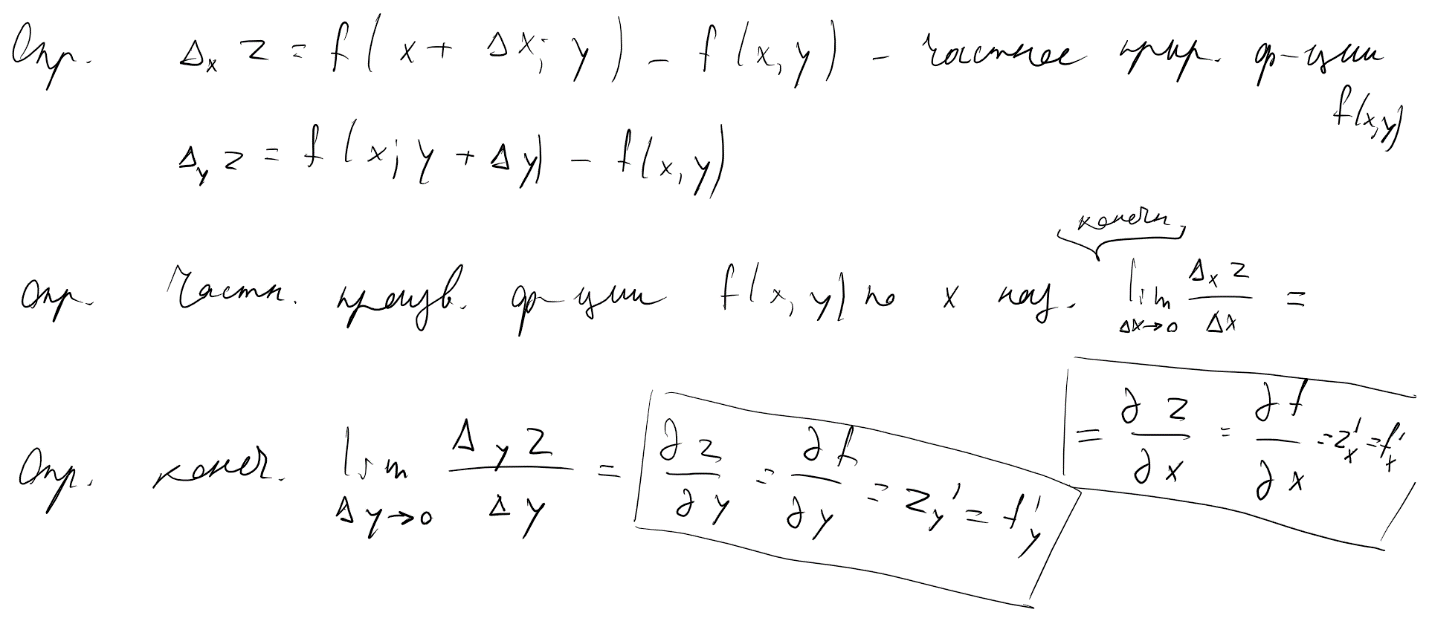 Опр. Δₓ z = f(x + Δx; y) − f(x, y) − частное прир. ф-ции f(x,y)
Δᵧ z = f(x; y + Δy) − f(x, y)
Опр. Частн. произв. ф-ции f(x, y) по x наз. конечн. lim_{Δx→0} Δₓ z / Δx =
= ∂z/∂x = ∂f/∂x = z'ₓ = f'ₓ
Опр. конеч. lim_{Δy→0} Δᵧ z / Δy = ∂z/∂y = ∂f/∂y = z'ᵧ = f'ᵧ